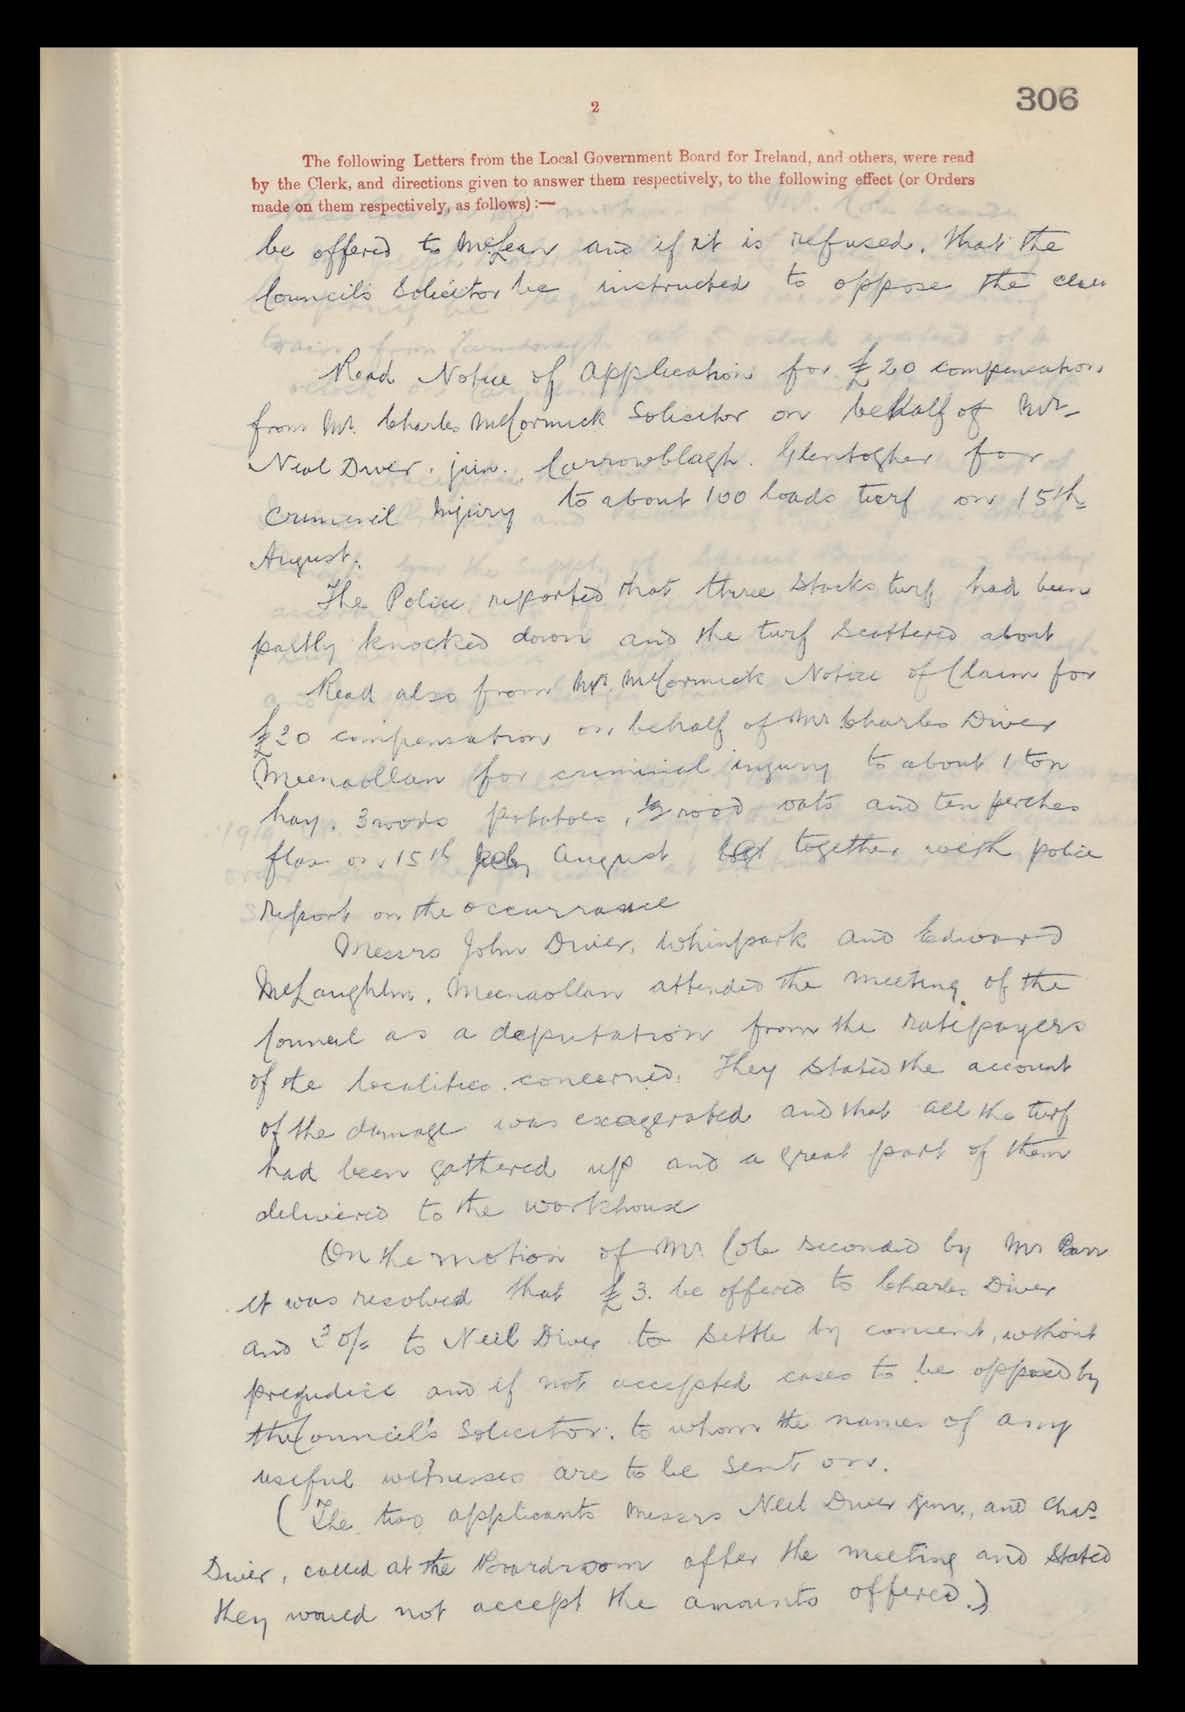 306
2
The following Letters from the Local Government Board for Ireland, and others, were read
by the Clerk, and directions given to answer them respectively, to the following effect (or Orders
made on them respectively, as follows) :—
be offered to McLean and if it is refused. that the
Council's Solicitor be instructed to oppose the
Read Notice of Application for £20 compensation
from Mr. Charles McCormick Solicitor on behalf of Mr
Neal Diver. jun. Carrowblagh. Glentogher for
Criminal Injury to about 100 loads turf on 15th
August.
The Police reported that three stacks turf had been
partly knocked down and the turf scattered about
Read also from Mr. McCormick Notice of Claim for
£20 compensation on behalf of Mr Charles Diver
Meenaollan for criminal injury to about 1 ton
hay. 3 roods potatoes, ½ rood oats and ten perches
flax on 15th July August together with police
report on the occurrance
Messrs John Diver, Whinpark and Edward
McLaughlin, Meenaollan attended the meeting of the
Council as a deputation from the ratepayers
of the localities concerned. They stated the account
of the damage was exagerated and that all the turf
had been gathered up and a great part of them
delivered to the workhouse
On the motion of Mr. Cole seconded by Mr Barr
it was resolved that £3. be offered to Charles Diver
and 30/= to Neil Diver to settle by consent, without
prejudice and if not accepted cases to be opposed by
the Council's Solicitor. to whom the names of any
useful witnesses are to be sent on.
(The two applicants Messrs Neil Diver jun., and Chas
Diver, called at the Boardroom after the meeting and stated
they would not accept the amounts offered.)